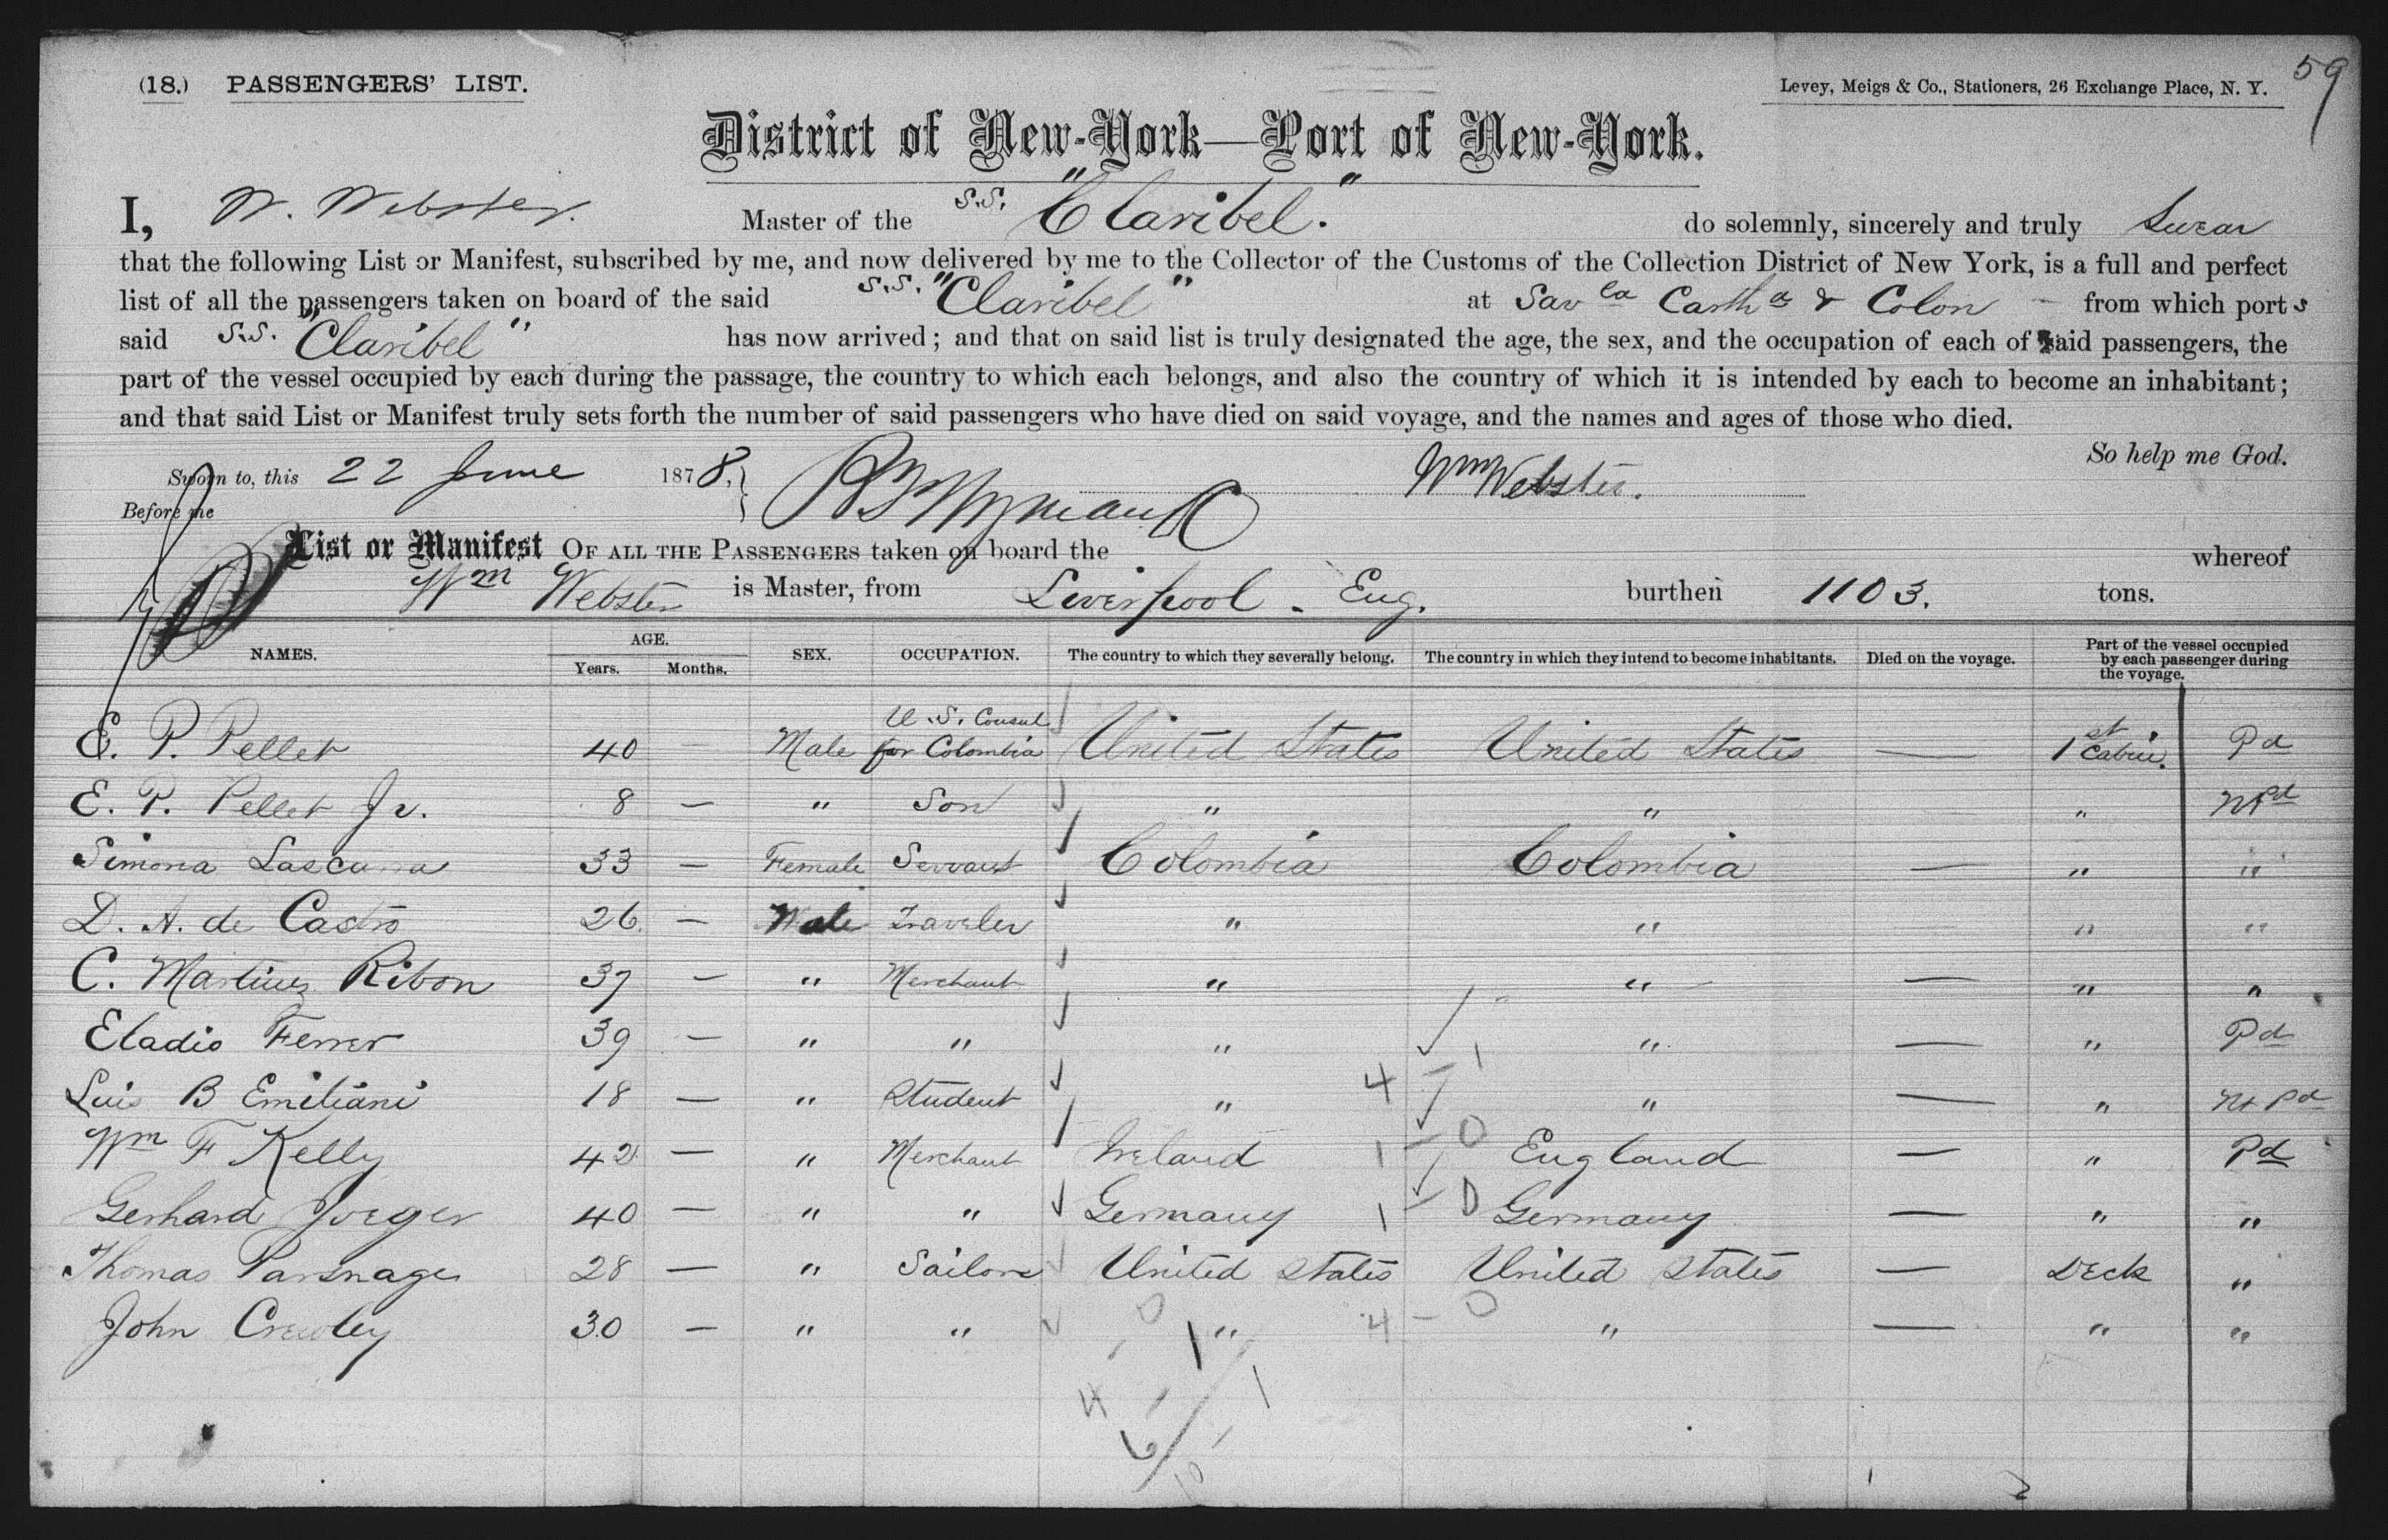 (18.) PASSENGERS' LIST.
Levey, Meigs & Co., Stationers, 26 Exchange Place, N. Y.
59
District of New-York—Port of New-York.
I, W. Webster. Master of the S.S. "Claribel." do solemnly, sincerely and truly Swear
that the following List or Manifest, subscribed by me, and now delivered by me to the Collector of the Customs of the Collection District of New York, is a full and perfect
list of all the passengers taken on board of the said S.S. "Claribel" at Sav la Carth a & Colon — from which port s
said S.S. "Claribel" has now arrived; and that on said list is truly designated the age, the sex, and the occupation of each of said passengers, the
part of the vessel occupied by each during the passage, the country to which each belongs, and also the country of which it is intended by each to become an inhabitant;
and that said List or Manifest truly sets forth the number of said passengers who have died on said voyage, and the names and ages of those who died.
So help me God.
Sworn to, this 22 June 1878, Wm Webster.
Before me
List or Manifest OF ALL THE PASSENGERS taken on board the whereof
Wm Webster is Master, from Liverpool - Eng. burthen 1103. tons.
NAMES. AGE. Years. Months. SEX. OCCUPATION. The country to which they severally belong. The country in which they intend to become inhabitants. Died on the voyage. Part of the vessel occupied by each passenger during the voyage.
E. P. Pellet 40 — Male U.S. Consul for Colombia United States United States — 1st Cabin. Pd
E. P. Pellet Jr. 8 — " Son " " " Nt Pd
Simona 33 — Female Servant Colombia Colombia — " "
D. A. de Castro 26 — Male Traveler " " " "
C. Martinez Ribon 37 — " Merchant " " — " "
Eladio Ferrer 39 — " " " " — " Pd
Luis B Emiliani 18 — " Student " 4 — 1 " — " Nt Pd
Wm F Kelly 42 — " Merchant Ireland 1 — 0 England — " Pd
Gerhard Joeger 40 — " " Germany 1 — 0 Germany — " "
Thomas Parsnage 28 — " Sailors United States United States — Deck "
John Crewley 30 — " " " 4 — 0 " — " "